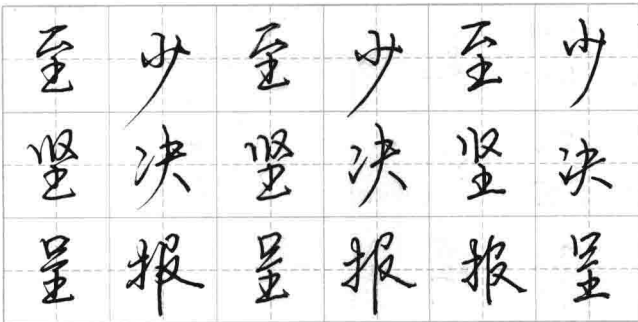 至少至少至少
坚决坚决坚决
呈报呈报报呈